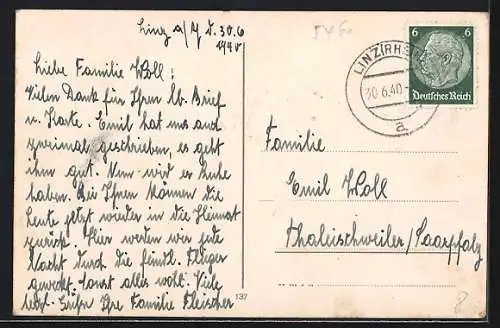 Linz a/R d. 30.6
1940
Liebe Familie Woll!
Vielen Dank für Ihren lb. Brief
u. Karte. Emil hat uns auch
zweimal geschrieben, es geht
ihm gut. Nun wird es Ruhe
haben. Bei Ihnen können die
Leute jetzt wieder in die Heimat
zurück. Hier werden wir jede
Nacht durch die feindl. Flieger
geweckt. Sonst alles wohl. Viele
herzl. Grüße Ihre Familie Fleischer
137
LINZ(RHEIN)
30.6.40
a
6 6
Deutsches Reich
Familie
Emil Woll
Thaleischweiler/Saarpfalz